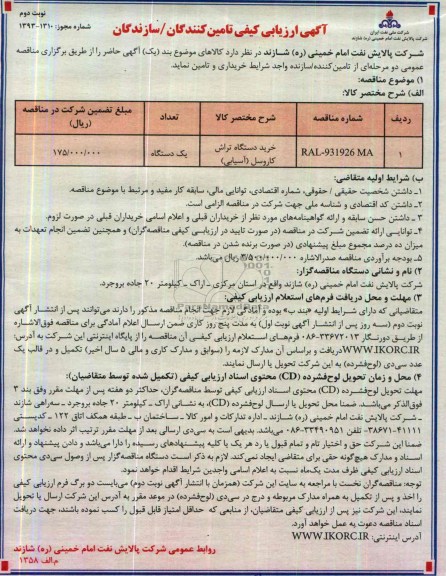 نوبت دوم
شماره مجوز: ۱۳۱۰-۱۳۹۳
آگهی ارزیابی کیفی تامین‌کنندگان/سازندگان
شرکت ملی نفت ایران
شرکت پالایش نفت امام خمینی (ره) شازند
شرکت پالایش نفت امام خمینی (ره) شازند در نظر دارد کالاهای موضوع بند (یک) آگهی حاضر را از طریق برگزاری مناقصه
عمومی دو مرحله‌ای از تامین‌کننده/سازنده واجد شرایط خریداری و تامین نماید.
۱) موضوع مناقصه:
الف) شرح مختصر کالا:
ردیف شماره مناقصه شرح مختصر کالا تعداد مبلغ تضمین شرکت در مناقصه (ریال)
۱ RAL-931926 MA خرید دستگاه تراش کاروسل (آسیابی) یک دستگاه ۱۷۵/۰۰۰/۰۰۰
ب) شرایط اولیه متقاضی:
۱ـ داشتن شخصیت حقیقی / حقوقی، شماره اقتصادی، توانایی مالی، سابقه کار مفید و مرتبط با موضوع مناقصه.
۲ـ داشتن کد اقتصادی و شناسه ملی جهت شرکت در مناقصه الزامی است.
۳ـ داشتن حسن سابقه و ارائه گواهینامه‌های مورد نظر از خریداران قبلی و اعلام اسامی خریداران قبلی در صورت لزوم.
۴ـ توانایی ارائه تضمین شرکت در مناقصه (در صورت تایید در ارزیابی کیفی مناقصه‌گران) و همچنین تضمین انجام تعهدات به
میزان ده درصد مجموع مبلغ پیشنهادی (در صورت برنده شدن در مناقصه).
۵ـ بودجه برآوردی مناقصه صدرالاشاره ۳/۵۰۰/۰۰۰/۰۰۰ ریال می‌باشد.
۲) نام و نشانی دستگاه مناقصه‌گزار:
شرکت پالایش نفت امام خمینی (ره) شازند واقع در استان مرکزی ـ اراک ـ کیلومتر ۲۰ جاده بروجرد.
۳) مهلت و محل دریافت فرم‌های استعلام ارزیابی کیفی:
متقاضیانی که دارای شرایط اولیه «بند ب» بوده و آمادگی لازم جهت انجام مناقصه مذکور را دارند می‌توانند پس از انتشار آگهی
نوبت دوم (سه روز پس از انتشار آگهی نوبت اول) به مدت پنج روز کاری ضمن ارسال اعلام آمادگی برای مناقصه فوق‌الاشاره
از طریق دورنگار ۳۳۶۷۲۰۱۳-۰۸۶ فرم‌های استعلام ارزیابی کیفی آن مناقصه را از پایگاه اینترنتی این شرکت به آدرس:
WWW.IKORC.IR دریافت و براساس آن مدارک لازم را (سوابق و مدارک کاری و مالی ۵ سال اخیر) تکمیل و در قالب یک
عدد سی‌دی (لوح‌فشرده) به این شرکت تحویل یا ارسال نمایند.
۴) محل و زمان تحویل لوح‌فشرده (CD) محتوی اسناد ارزیابی کیفی (تکمیل شده توسط متقاضیان):
مهلت تحویل لوح‌فشرده (CD) محتوی اسناد ارزیابی کیفی توسط مناقصه‌گران، حداکثر دو هفته پس از مهلت مقرر وفق بند ۳
فوق‌الذکر می‌باشند. ضمنا محل تحویل یا ارسال لوح‌فشرده (CD)، به نشانی اراک ـ کیلومتر ۲۰ جاده بروجرد ـ سه‌راهی شازند
ـ شرکت پالایش نفت امام خمینی (ره) شازند ـ اداره تدارکات و امور کالا ـ ساختمان ب ـ طبقه همکف اتاق ۱۲۲ ـ کدپستی
۴۱۱۱۱-۳۸۶۷۱ تلفن ۳۳۴۹۰۹۵۱-۰۸۶ می‌باشد. بدیهی است به سی‌دی ارسالی بعد از مهلت مقرر ترتیب اثر داده نخواهد شد.
ضمنا این شرکت حق و اختیار تام و تمام قبول یا رد هر یک یا کلیه پیشنهادهای رسیده را دارا می‌باشد و دادن پیشنهاد و ارائه
اسناد و مدارک هیچ‌گونه حقی برای متقاضی ایجاد نمی‌کند. لازم به ذکر است دستگاه مناقصه‌گزار پس از وصول سی‌دی محتوی
اسناد ارزیابی کیفی ظرف مدت یک‌ماه نسبت به اعلام اسامی واجدین شرایط اقدام خواهد نمود.
توجه: مناقصه‌گران نخست با مراجعه به سایت این شرکت (همزمان با انتشار آگهی نوبت دوم) می‌بایست دو برگ فرم ارزیابی کیفی
را اخذ و پس از تکمیل به همراه مدارک مربوطه و درج در سی‌دی (لوح‌فشرده) در موعد مقرر به آدرس این شرکت ارسال یا تحویل
نمایند، این شرکت نیز پس از ارزیابی کیفی متقاضیان، از منابعی که حداقل امتیاز قابل قبول را کسب نموده باشند، جهت دریافت
اسناد مناقصه دعوت به عمل خواهد آورد.
آدرس اینترنتی: WWW.IKORC.IR
روابط عمومی شرکت پالایش نفت امام خمینی (ره) شازند
م.الف ۱۳۵۸